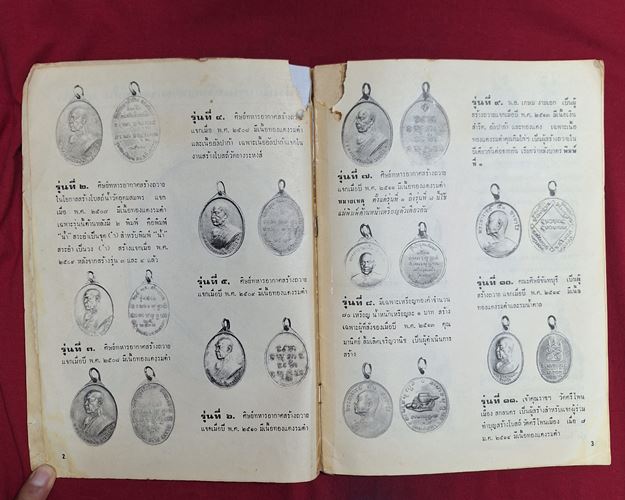 รุ่นที่ ๔. ศิษย์ทหารอากาศสร้างถวาย
แจกเมื่อ พ.ศ. ๒๕๐๙ มีเนื้อทองแดงรมดำ
และเนื้ออัลปาก้า เฉพาะเนื้ออัลปาก้าแจกใน
งานสร้างโบสถ์วัดอ่างระหงส์
รุ่นที่ ๒. ศิษย์ทหารอากาศสร้างถวาย
ในโอกาสสร้างโบสถ์น้ำวัดอุดมสมพร แจก
เมื่อ พ.ศ. ๒๕๐๗ มีเนื้อทองแดงรมดำ
เฉพาะรุ่นนี้ด้านหลังมี ๒ พิมพ์ คือพิมพ์
"น้ำ" สระอำเป็นขุด (ำ) สำหรับพิมพ์ "น้ำ"
สระอำ เป็นวง (ำ) สร้างแจกเมื่อ พ.ศ.
๒๕๐๙ หลังจากสร้างรุ่น ๓ และ ๔ แล้ว
รุ่นที่ ๕. ศิษย์ทหารอากาศสร้างถวาย
แจกเมื่อปี พ.ศ. ๒๕๐๙ มีเนื้อทองแดงรมดำ
รุ่นที่ ๓. ศิษย์ทหารอากาศสร้างถวาย
แจกเมื่อ พ.ศ. ๒๕๐๘ มีเนื้อทองแดงรมดำ
รุ่นที่ ๖. ศิษย์ทหารอากาศสร้างถวาย
แจกเมื่อปี พ.ศ. ๒๕๑๐ มีเนื้อทองแดงรมดำ
2
รุ่นที่ ๗. ศิษย์ทหารอากาศสร้างถวาย
แจกเมื่อปี พ.ศ. ๒๕๑๑ มีเนื้อทองแดงรมดำ
หมายเหตุ ตั้งแต่รุ่นที่ ๑ ถึงรุ่นที่ ๗ ใช้
แม่พิมพ์ด้านหน้าเหรียญตัวเดียวกัน
รุ่นที่ ๘. มีเฉพาะเหรียญทองคำจำนวน
๗๐ เหรียญ น้ำหนักเหรียญละ ๑ บาท สร้าง
เฉพาะผู้ที่สั่งจองเมื่อปี พ.ศ. ๒๕๑๑ คุณ
มานิตย์ ลิ้มเลิศเจริญวานิช เป็นผู้ดำเนินการ
สร้าง
รุ่นที่ ๙. พ.อ. เกษม งามเอก เป็นผู้
สร้างถวายแจกเมื่อปี พ.ศ. ๒๕๑๑ มีเนื้อเงิน
สำริด, อัลปาก้า และทองแดง เฉพาะเนื้อ
รุ่นที่ ๑๐. คณะศิษย์จันทบุรี เป็นผู้
สร้างถวาย แจกเมื่อปี พ.ศ. ๒๕๑๔ มีเนื้อ
ทองแดงรมดำและรมน้ำตาล
รุ่นที่ ๑๑. เจ้าคุณราชฯ วัดศรีโพน
เมือง สกลนคร เป็นผู้สร้างสำหรับแจกผู้ร่วม
ทำบุญสร้างโบสถ์ วัดศรีโพนเมือง เมื่อ ๗
ม.ค. ๒๕๑๔ มีเนื้อทองแดงรมดำ
3